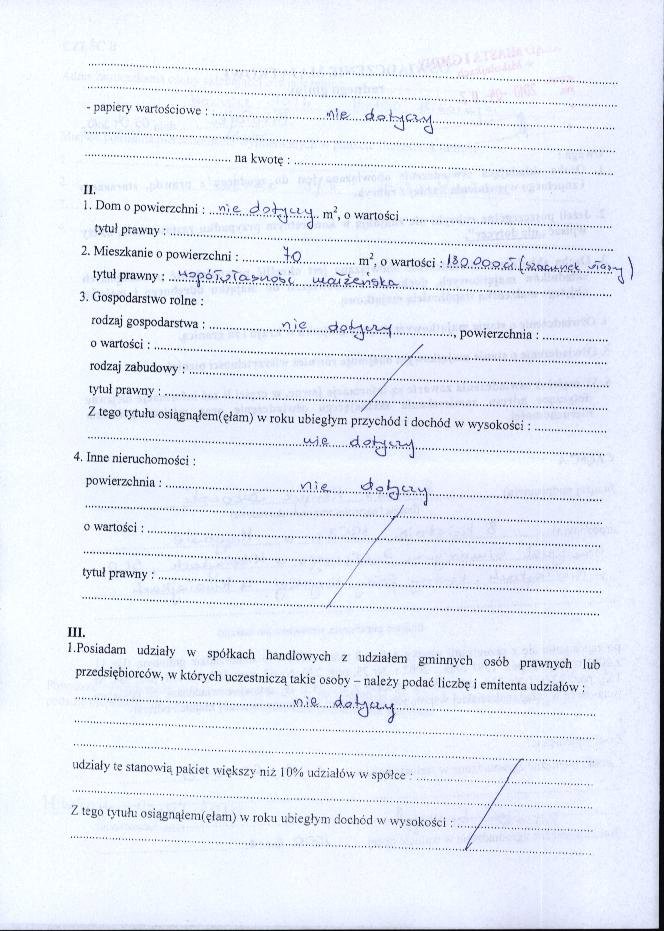 - papiery wartościowe : nie dotyczy
na kwotę :
II.
1. Dom o powierzchni : nie dotyczy m², o wartości
tytuł prawny :
2. Mieszkanie o powierzchni : 70 m², o wartości : 130 000 zł (szacunek własny)
tytuł prawny : współwłasność małżeńska
3. Gospodarstwo rolne :
rodzaj gospodarstwa : nie dotyczy, powierzchnia :
o wartości :
rodzaj zabudowy :
tytuł prawny :
Z tego tytułu osiągnąłem(ęłam) w roku ubiegłym przychód i dochód w wysokości :
nie dotyczy
4. Inne nieruchomości :
powierzchnia : nie dotyczy
o wartości :
tytuł prawny :
III.
1.Posiadam udziały w spółkach handlowych z udziałem gminnych osób prawnych lub
przedsiębiorców, w których uczestniczą takie osoby – należy podać liczbę i emitenta udziałów :
nie dotyczy
udziały te stanowią pakiet większy niż 10% udziałów w spółce :
Z tego tytułu osiągnąłem(ęłam) w roku ubiegłym dochód w wysokości :